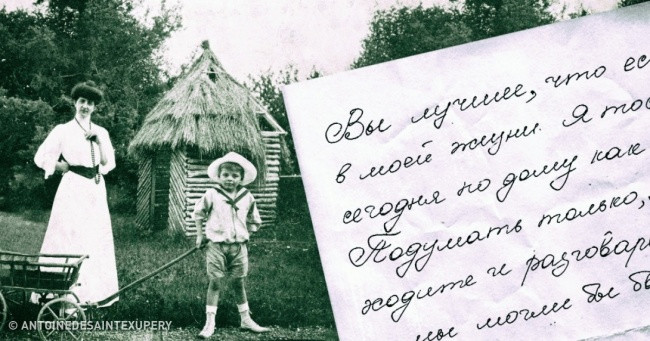 Вы лучшее, что ес
в моей жизни. Я тос
сегодня по дому как
Подумать только,
ходите и разговари
мы могли бы б
© ANTOINEDESAINTEXUPERY